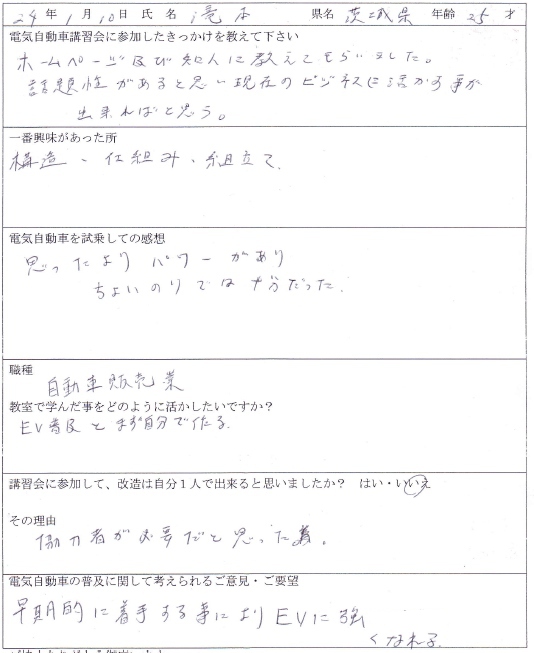 24年1月10日 氏 名 滝本 県名 茨城県 年齢 25 才
電気自動車講習会に参加したきっかけを教えて下さい
ホームページ及び知人に教えてもらいました。
話題性があると思い現在のビジネスに活かす事が
出来ればと思う。
一番興味があった所
構造、仕組み、組立て、
電気自動車を試乗しての感想
思ったよりパワーがあり
ちょいのりでは十分だった。
職種
自動車販売業
教室で学んだ事をどのように活かしたいですか？
EV普及とまず自分で作る
講習会に参加して、改造は自分1人で出来ると思いましたか？ はい・いいえ
その理由
協力者が必要だと思った為。
電気自動車の普及に関して考えられるご意見・ご要望
早期的に着手する事によりEVに強
くなれる